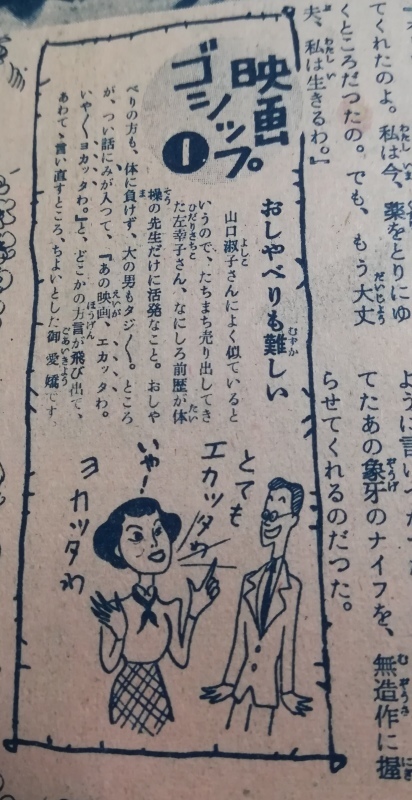 てくれたのよ。私は今、薬をとりにゆ
くところだつたの。でも、もう大丈
夫、私は生きるわ。』
ように言い
てたあの象牙のナイフを、無造作に握
らせてくれるのだつた。
映画
ゴシップ
1
おしやべりも難しい
山口淑子さんによく似ていると
いうので、たちまち売り出してき
た左幸子さん、なにしろ前歴が体
操の先生だけに活発なこと。おしや
べりの方も、体に負けず、大の男もタジ〱。ところ
が、つい話にみが入つて、『あの映画、エカッタわ。
いや〱ヨカッタわ。』と、どこかの方言が飛び出て、
あわてゝ言い直すところ、ちよいとした御愛嬌です
とても
エカッタわ
いや!
ヨカッタわ